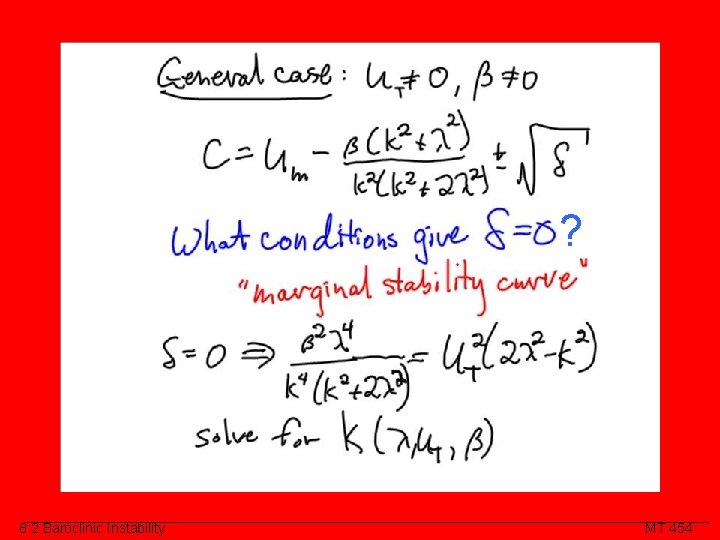 General case: U_T ≠ 0, β ≠ 0
C = U_m - β(k²+λ²) / k²(k²+2λ²) ± √δ
What conditions give δ=0?
"marginal stability curve"
δ=0 ⇒ β²λ⁴ / k⁴(k²+2λ²) = U_T²(2λ²-k²)
solve for K(λ,U_T,β)
8.2 Baroclinic Instability
MT 454